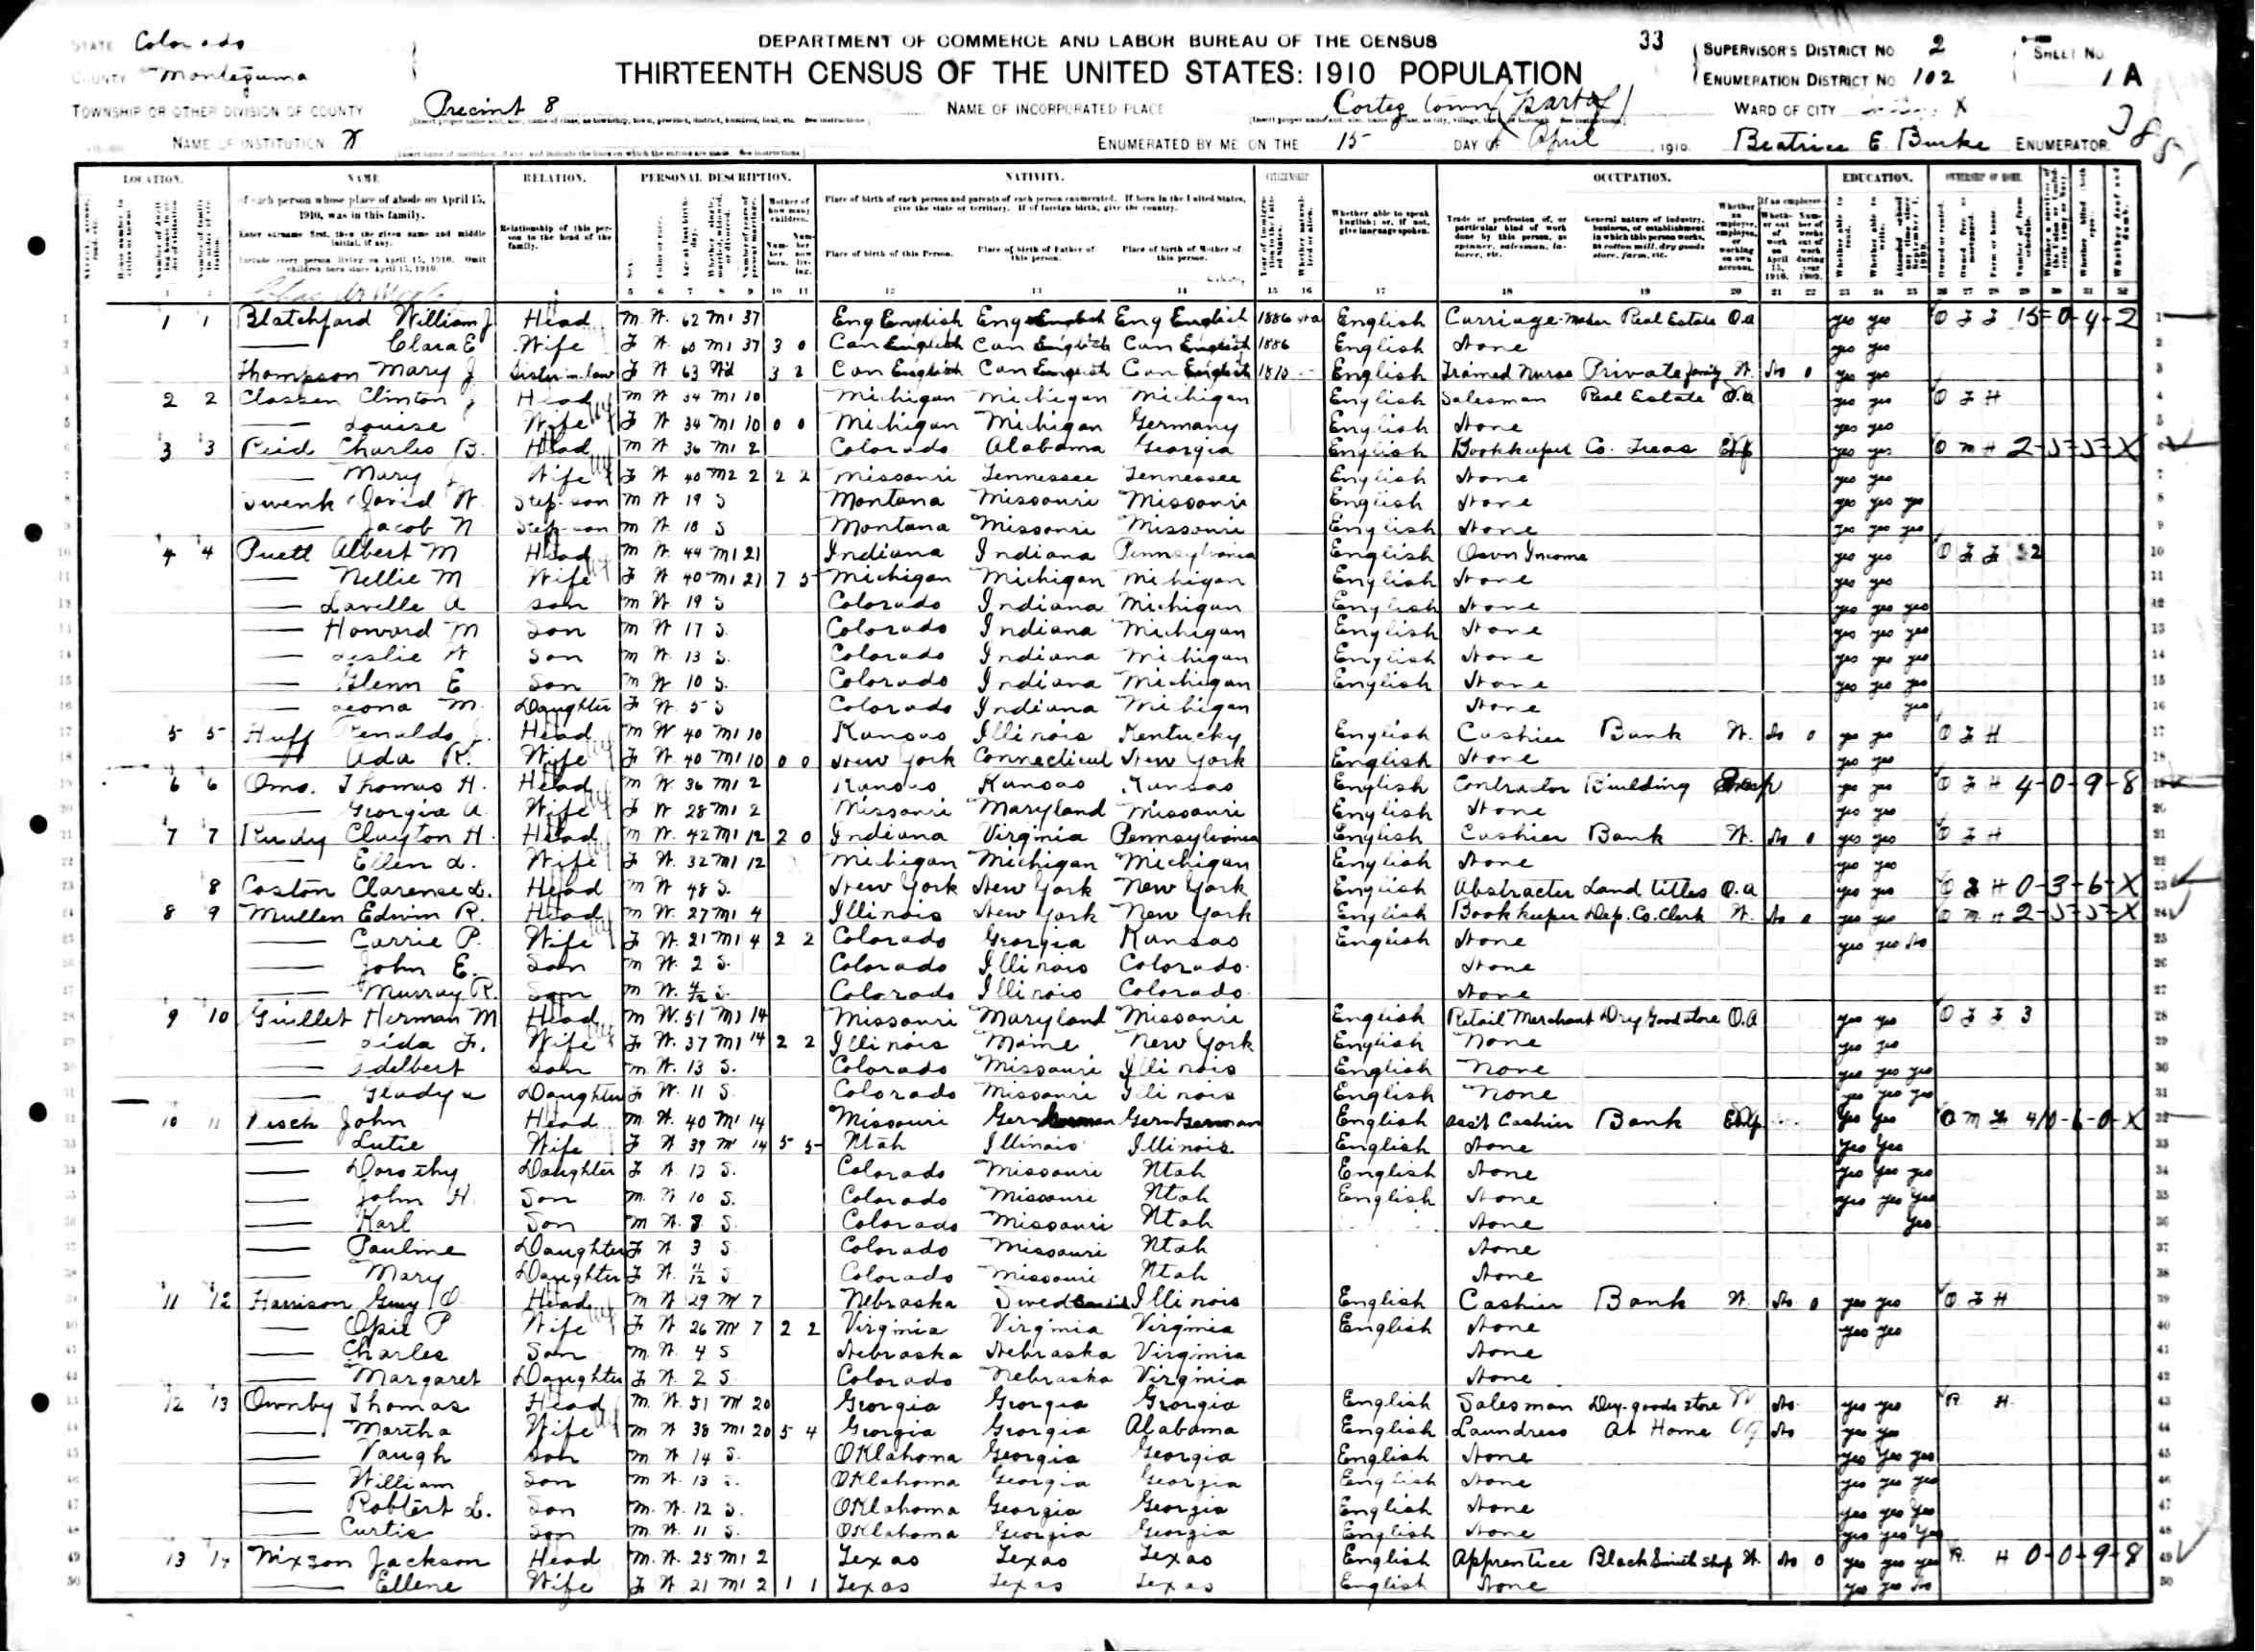 STATE Colorado
COUNTY Montezuma
DEPARTMENT OF COMMERCE AND LABOR BUREAU OF THE CENSUS
33
THIRTEENTH CENSUS OF THE UNITED STATES: 1910 POPULATION
SUPERVISOR'S DISTRICT NO 2
ENUMERATION DISTRICT NO 102
SHEET NO
1 A
TOWNSHIP OR OTHER DIVISION OF COUNTY Precinct 8
NAME OF INCORPORATED PLACE Cortez town (part of)
WARD OF CITY X
NAME OF INSTITUTION X
ENUMERATED BY ME ON THE 15 DAY OF April 1910.
Beatrice E. Burke ENUMERATOR.
LOCATION. NAME RELATION. PERSONAL DESCRIPTION. NATIVITY. CITIZENSHIP OCCUPATION. EDUCATION. OWNERSHIP OF HOME.
of each person whose place of abode on April 15, 1910, was in this family.
Enter surname first, then the given name and middle initial, if any.
Include every person living on April 15, 1910. Omit children born since April 15, 1910.
Relationship of this person to the head of the family.
Place of birth of each person and parents of each person enumerated. If born in the United States, give the state or territory. If of foreign birth, give the country.
Place of birth of this Person. Place of birth of Father of this person. Place of birth of Mother of this person.
Whether able to speak English; or, if not, give language spoken.
Trade or profession of, or particular kind of work done by this person, as spinner, salesman, laborer, etc.
General nature of industry, business, or establishment in which this person works, as cotton mill, dry goods store, farm, etc.
1 1 Blatchford William J Head M W 62 M1 37 Eng English Eng English Eng English 1886 Na English Carriage-maker Real Estate O.a yes yes O F F 15-0-4-2
Clara E Wife F W 60 M1 37 3 0 Can English Can English Can English 1886 English None yes yes
Thompson Mary J Sister-in-law F W 63 Wd 3 2 Can English Can English Can English English Trained Nurse Private family W. No 0 yes yes
2 2 Classen Clinton J Head M W 34 M1 10 Michigan Michigan Michigan English Salesman Real Estate O.a yes yes O F H
Louise Wife F W 34 M1 10 0 0 Michigan Michigan Germany English None yes yes
3 3 Reid Charles B. Head M W 36 M1 2 Colorado Alabama Georgia English Bookkeeper Co. Treas Emp yes yes O M H 2-5-5-X
Mary J Wife F W 40 M2 2 2 2 Missouri Tennessee Tennessee English None yes yes
Swenk David W. Step-son M W 19 S Montana Missouri Missouri English None yes yes yes
Jacob N Step-son M W 18 S Montana Missouri Missouri English None yes yes yes
4 4 Puett Albert M Head M W 44 M1 21 Indiana Indiana Pennsylvania English Own Income yes yes O F F
Nellie M Wife F W 40 M1 21 7 5 Michigan Michigan Michigan English None yes yes
Lavelle A Son M W 19 S Colorado Indiana Michigan English None yes yes yes
Howard M Son M W 17 S Colorado Indiana Michigan English None yes yes yes
Leslie W Son M W 13 S. Colorado Indiana Michigan English None yes yes yes
Glenn E Son M W 10 S. Colorado Indiana Michigan English None yes yes yes
Leona M. Daughter F W 5 S Colorado Indiana Michigan None yes
5 5 Huff Renaldo J. Head M W 40 M1 10 Kansas Illinois Kentucky English Cashier Bank W. No 0 yes yes O F H
Ada R. Wife F W 40 M1 10 0 0 New York Connecticut New York English None yes yes
6 6 Omo. Thomas H. Head M W 36 M1 2 Kansas Kansas Kansas English Contractor Building Emp yes yes O F H 4-0-9-8
Georgia A. Wife F W 28 M1 2 Missouri Maryland Missouri English None yes yes
7 7 Rudy Clayton H. Head M W. 42 M1 12 2 0 Indiana Virginia Pennsylvania English Cashier Bank W. No 0 yes yes O F H
Ellen L. Wife F W. 32 M1 12 Michigan Michigan Michigan English None yes yes
8 Coston Clarence L. Head M W 48 S. New York New York New York English Abstracter Land titles O.a yes yes O F H 0-3-6-X
8 9 Mullen Edwin R. Head M W. 27 M1 4 Illinois New York New York English Bookkeeper Dep. Co. Clerk W. No 0 yes yes O M H 2-5-5-X
Carrie P. Wife F W. 21 M1 4 2 2 Colorado Georgia Kansas English None yes yes No
John E. Son M W. 2 S. Colorado Illinois Colorado. None
Murray R. Son M W. S. Colorado Illinois Colorado. None
9 10 Guillet Herman M Head M W. 51 M1 14 Missouri Maryland Missouri English Retail Merchant Dry Good store O.A yes yes O F F 3
Lida F. Wife F W. 37 M1 14 2 2 Illinois Maine New York English None yes yes
Adelbert Son M. W. 13 S. Colorado Missouri Illinois English None yes yes yes
Gladys Daughter F W. 11 S Colorado Missouri Illinois English None yes yes yes
10 11 Pesch John Head M. W. 40 M1 14 Missouri Ger German Ger German English Ass't Cashier Bank Emp yes yes O M F 4
Lutie Wife F W 39 M1 14 5 5 Utah Illinois Illinois. English None yes yes
Dorothy Daughter F W. 12 S. Colorado Missouri Utah English None yes yes yes
John H. Son M. W 10 S. Colorado Missouri Utah English None yes yes yes
Karl Son M W. 8 S. Colorado Missouri Utah None yes
Pauline Daughter F W 3 S Colorado Missouri Utah None
Mary Daughter F W. 11/12 S Colorado Missouri Utah None
11 12 Harrison Guy O. Head M W 29 M1 7 Nebraska Swed Illinois English Cashier Bank W. No 0 yes yes O F H
Opie P Wife F W 26 M1 7 2 2 Virginia Virginia Virginia English None yes yes
Charles Son M. W. 4 S Nebraska Nebraska Virginia None
Margaret Daughter F W. 2 S. Colorado Nebraska Virginia None
12 13 Ownby Thomas Head M. W. 51 M1 20 Georgia Georgia Georgia English Salesman Dry-goods store W No. yes yes R. H.
Martha Wife M W 38 M1 20 5 4 Georgia Georgia Alabama English Laundress At Home No yes yes
Vaugh Son M W 14 S. Oklahoma Georgia Georgia English None yes yes yes
William Son M W. 13 S. Oklahoma Georgia Georgia English None yes yes yes
Robtert L. Son M. W. 12 S. Oklahoma Georgia Georgia English None yes yes yes
Curtis Son M W. 11 S. Oklahoma Georgia Georgia English None yes yes yes
13 14 Nixson Jackson Head M. W. 25 M1 2 Texas Texas Texas English Apprentice BlackSmith Shop W. No 0 yes yes yes R. H 0-0-9-8
Ellene Wife F W 21 M1 2 1 1 Texas Texas Texas English None yes yes No